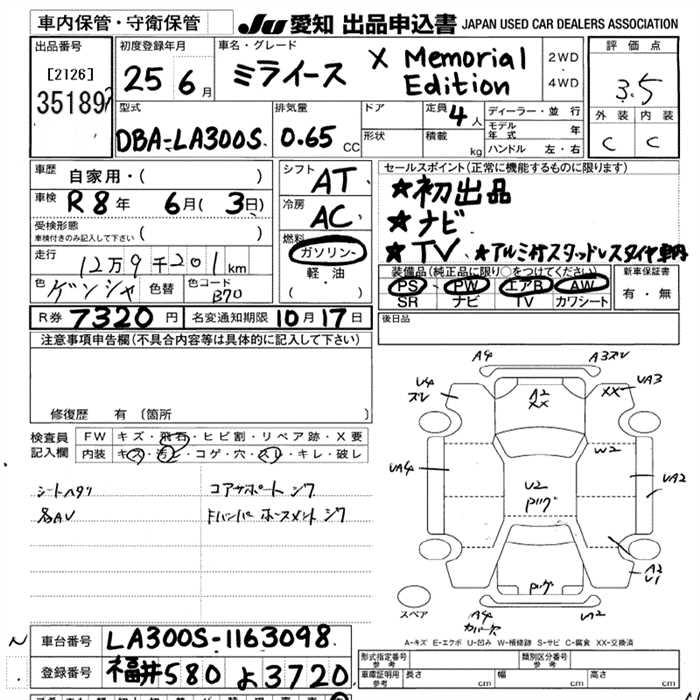 車内保管・守衛保管
JU 愛知 出品申込書 JAPAN USED CAR DEALERS ASSOCIATION
出品番号
[2126]
35189
初度登録年月
25 6 月
車名・グレード
ミライース X Memorial Edition
2WD
4WD
評価点
3.5
外装 内装
C C
型式
DBA-LA300S
排気量
0.65 CC
ドア
形状
定員 4 人
積載 kg
ディーラー・並行
モデル年式 年
ハンドル 左・右
車歴 自家用・( )
車検 R8年 6月(3日)
受検形態
車検付きのみ記入して下さい ( )
走行 12万9千201km
色 ゲンシャ 色替 色コード B70
シフト AT
冷房 AC
燃料 ガソリン・
軽・油
( )
セールスポイント(正常に機能するものに限ります)
★初出品
★ナビ
★TV ★アルミ付スタッドレスタイヤ車内
装備品(純正品に限り○をつけてください)
PS PW エアB AW
SR ナビ TV カワシート
新車保証書
有・無
R券 7320円 名変通知期限 10月17日
後日品
注意事項申告欄(不具合内容等は具体的に記入して下さい)
修復歴 有(箇所 )
検査員記入欄
FW キズ・飛石・ヒビ割・リペア跡・X要
内装 キズ・汚レ・コゲ・穴・スレ・キレ・破レ
シートヘタリ コアサポートジワ
各AV Fバンパーホースメントジワ
A4 A3スレ
U4スレ A2 XX XX UA3
UA4 W2 UA2
U2 Pリグ
A2 U1
Pリグ
スペア
A4 カバー穴 UA2
A-キズ E-エクボ U-凹み W-補修跡 S-サビ C-腐食 XX-交換済
車台番号 LA300S-1163098
登録番号 福井580 よ3720
形式指定番号 参考 類別区分番号 参考
車庫証明用 参考 長さ cm 幅 cm 高さ cm